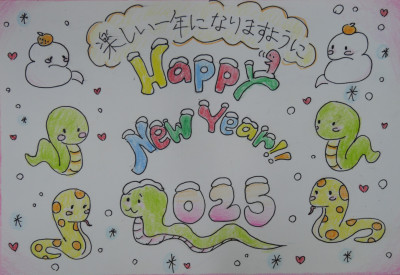 楽しい一年になりますように
Happy
New Year!!
2025